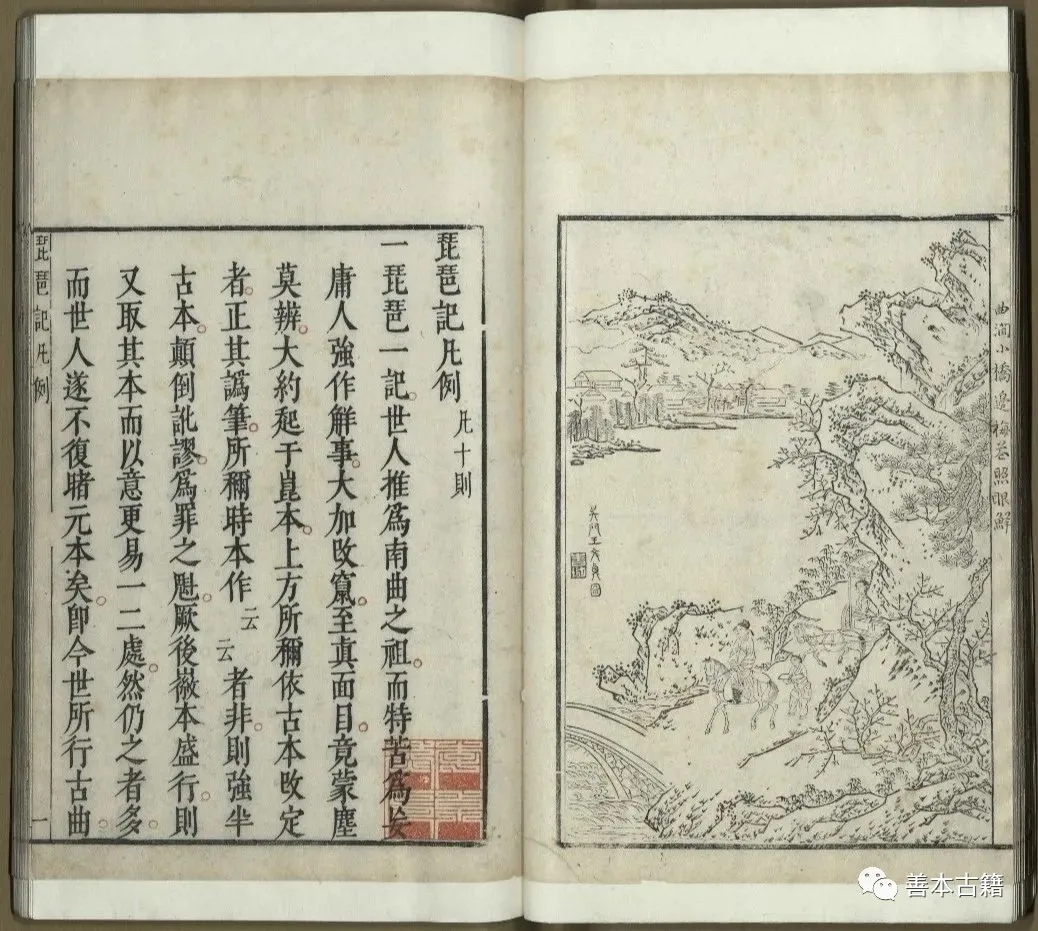 曲澗小橋邊梅苔照眼鮮
吳門王文貞
琵琶記凡例 凡十則
一琵琶一記世人推爲南曲之祖而特苦爲妄
庸人強作解事大加改竄至眞面目竟蒙塵
莫辨大約起于崑本上方所稱依古本改定
者正其譌筆所稱時本作云云者非則強半
古本顛倒訛謬爲罪之魁厥後徽本盛行則
又取其本而以意更易一二處然仍之者多
而世人遂不復睹元本矣卽今世所行古曲
琵琶記凡例
一
善本古籍